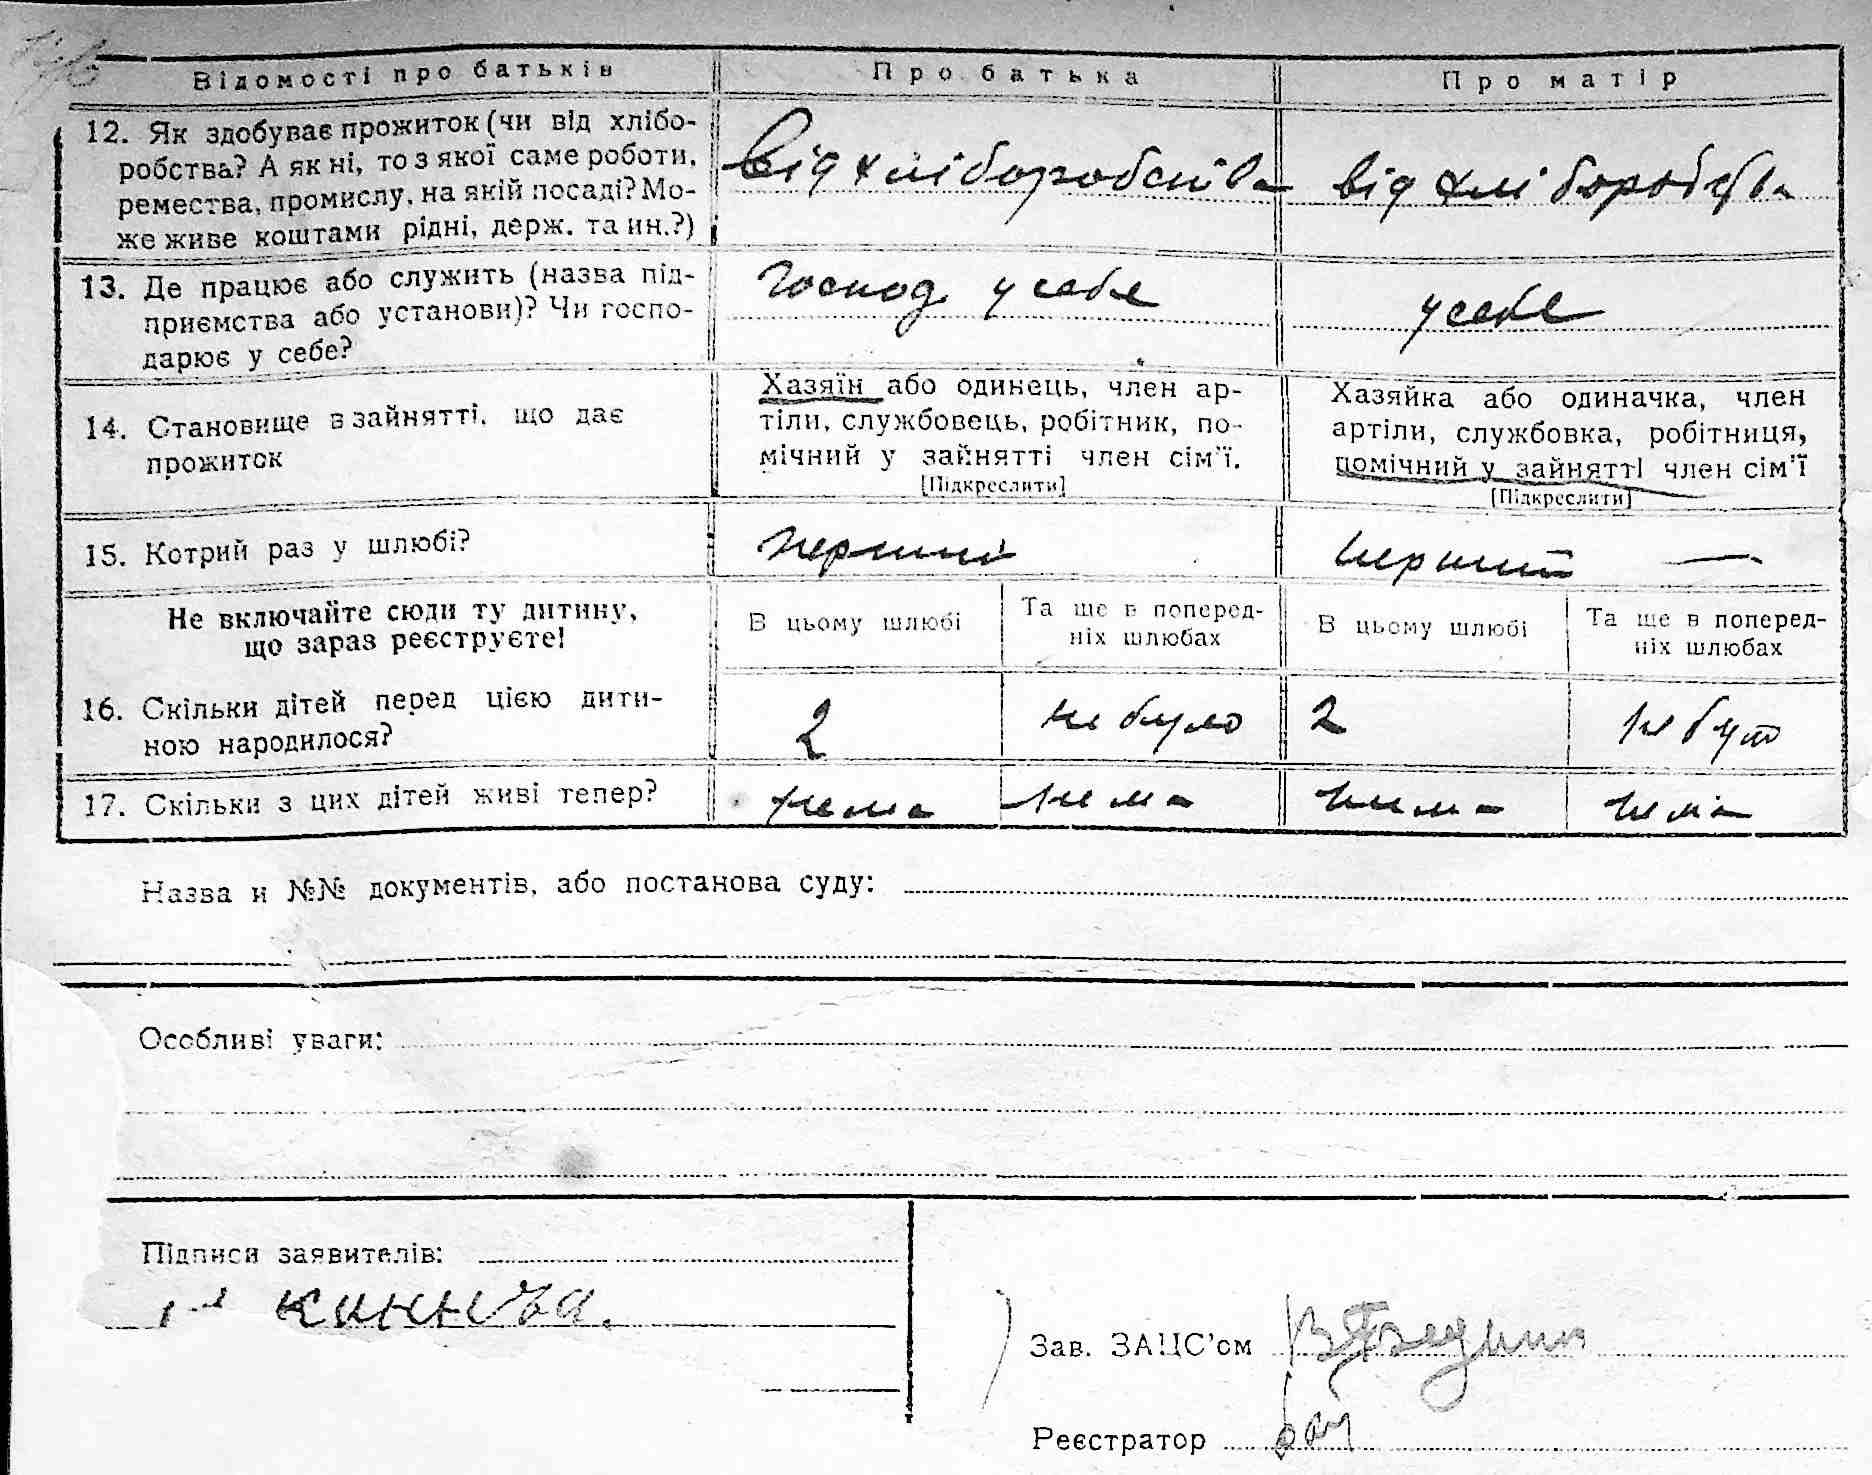 Відомості про батьків Про батька Про матір
12. Як здобуває прожиток (чи від хлібо-
робства? А як ні, то з якої саме роботи,
ремества, промислу, на якій посаді? Мо-
же живе коштами рідні, держ. та ин.?)
від хліборобства від хліборобства
13. Де працює або служить (назва під-
приємства або установи)? Чи госпо-
дарює у себе?
господ у себе у себе
14. Становище в зайнятті, що дає
прожиток
Хазяїн або одинець, член ар-
тіли, службовець, робітник, по-
мічний у зайнятті член сім'ї.
[Підкреслити]
Хазяйка або одиначка, член
артіли, службовка, робітниця,
помічний у зайнятті член сім'ї
[Підкреслити]
15. Котрий раз у шлюбі? перший перший —
Не включайте сюди ту дитину,
що зараз реєструєте!
В цьому шлюбі
Та ще в поперед-
ніх шлюбах
В цьому шлюбі
Та ще в поперед-
ніх шлюбах
16. Скільки дітей перед цією дити-
ною народилося?
2 не було 2 не було
17. Скільки з цих дітей живі тепер? нема нема нима нема
Назва и №№ документів, або постанова суду:
Особливі уваги:
Підписи заявителів:
Зав. ЗАЦС'ом
Реєстратор